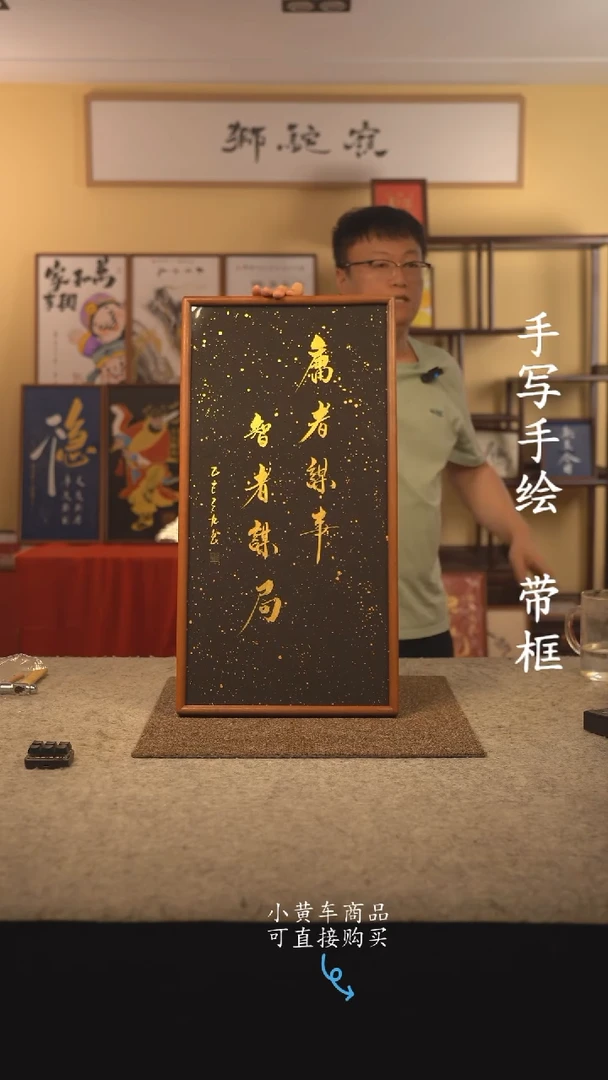 獅駝
家和萬
事興
稳
庸者謀事
智者謀局
手写手绘 带框
小黄车商品
可直接购买